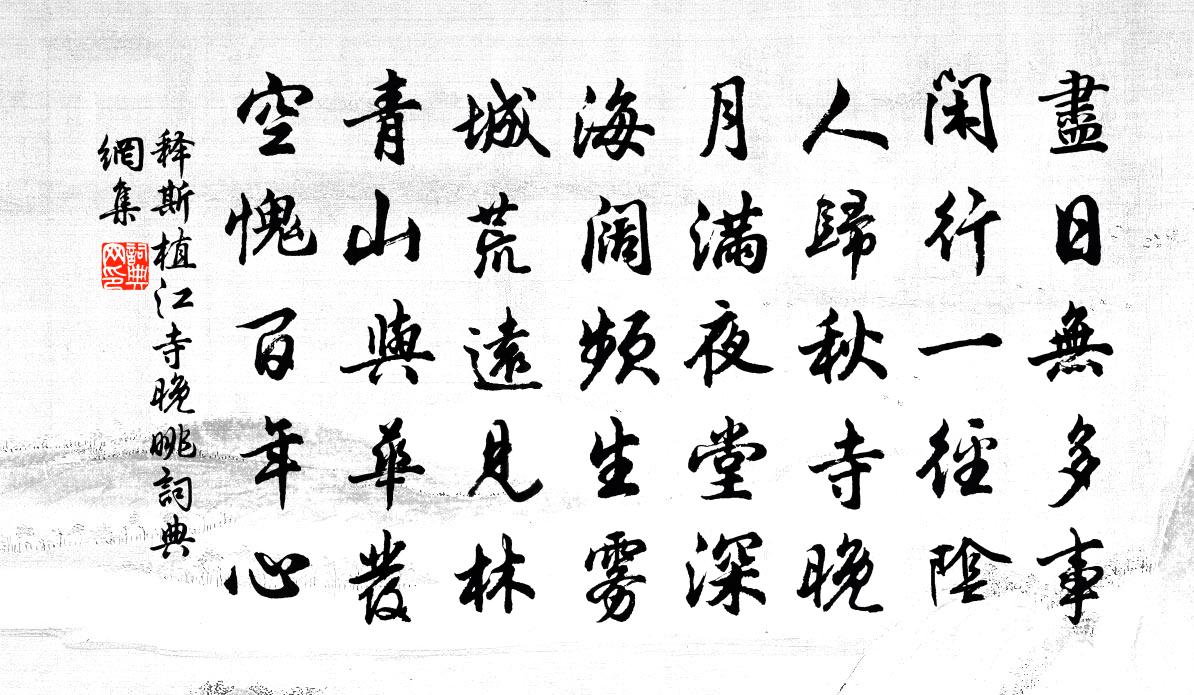 盡日無多事
閑行一徑陰
人歸秋寺晚
月滿夜堂深
海闊頻生霧
城荒遠見林
青山與華發
空愧百年心
释斯植江寺晚眺詞典
網集
詞典
网印